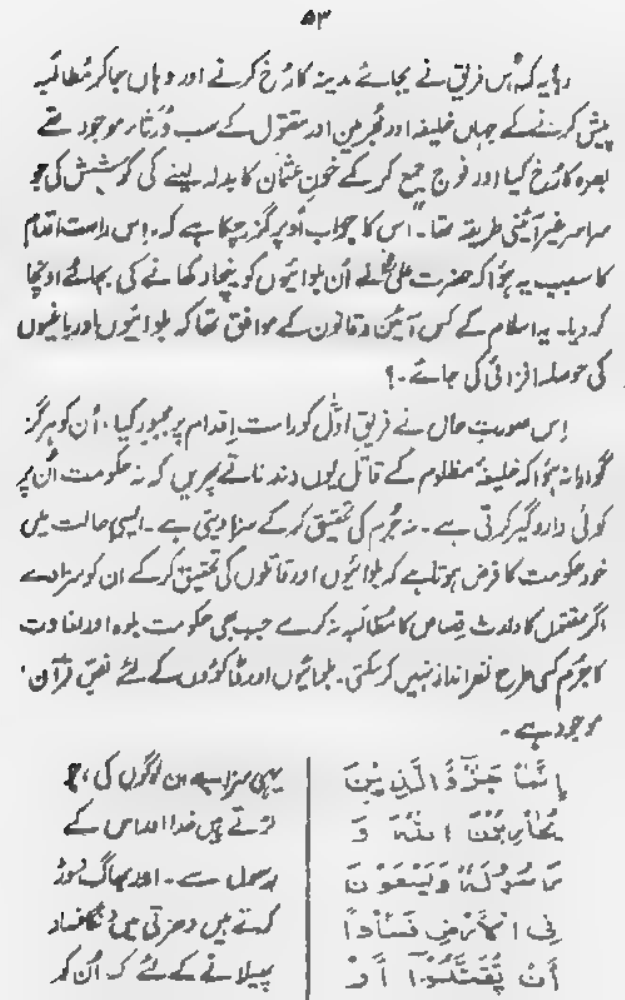 ۵۳
رہا یہ کہ "اس فریق نے بجائے مدینہ کا رُخ کرنے اور وہاں جا کر مُطالَبہ
پیش کرنے کے جہاں خلیفہ اور مُجرمین اور مقتول کے سب وُرَثاء موجود تھے
بصرہ کا رُخ کیا اور فوج جمع کر کے خونِ عثمان کا بدلہ لینے کی کوشش کی جو
سراسر غیر آئینی طریقہ تھا۔" اس کا جواب اُوپر گزر چکا ہے کہ اِس راست اقدام
کا سبب یہ ہُوا کہ حضرت علیؓ نے اُن بلوائیوں کو نیچا دکھانے کی بجائے اونچا
کر دیا۔ یہ اسلام کے کس آئین و قانون کے موافق تھا کہ بلوائیوں اور باغیوں
کی حوصلہ افزائی کی جائے۔؟
اِس صورتِ حال نے فریقِ اوّل کو راست اِقدام پر مجبور کیا، اُن کو ہرگز
گوارا نہ ہُوا کہ خلیفۂ مظلوم کے قاتل یوں دندناتے پھریں کہ نہ حکومت اُن پر
کوئی دارو گیر کرتی ہے۔ نہ جُرم کی تحقیق کر کے سزا دیتی ہے۔ ایسی حالت میں
خود حکومت کا فرض ہوتا ہے کہ بلوائیوں اور قاتلوں کی تحقیق کر کے ان کو سزا دے
اگر مقتول کا وارث قِصاص کا مُطالَبہ نہ کرے جب بھی حکومت بلوہ اور بغاوت
کا جُرم کسی طرح نظر انداز نہیں کر سکتی۔ بلوائیوں اور ڈاکوؤں کے لئے نصِّ قرآن
موجود ہے۔
إِنَّمَا جَزٰٓؤُا الَّذِيْنَ
يُحَارِبُوْنَ اللّٰهَ وَ
رَسُوْلَهٗ وَيَسْعَوْنَ
فِى الْأَرْضِ فَسَادًا
أَنْ يُّقَتَّلُوْٓا أَوْ
یہی سزا ہے ان لوگوں کی، جو
لڑتے ہیں خدا اور اس کے
رسول سے۔ اور بھاگ دوڑ
کرتے ہیں دھرتی میں دنگا فساد
پھیلانے کے لئے کہ اُن کو